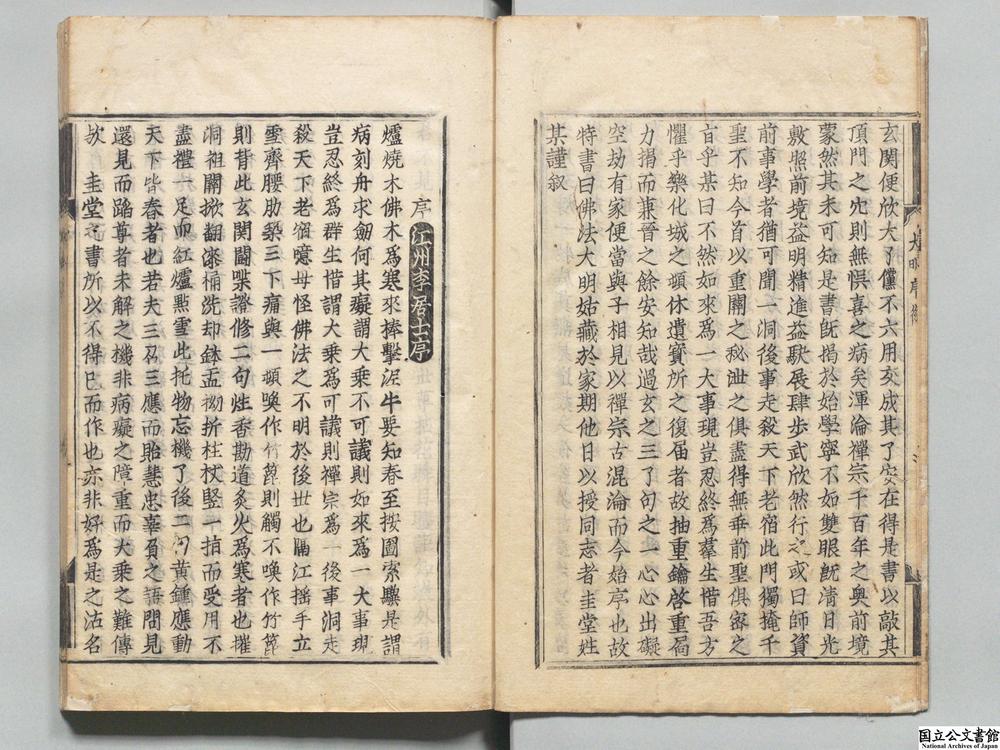 玄関便欣大了儻不六用交成其了安在得是書以敲其
頂門之穴則無惧喜之病矣渾淪禪宗千百年之奧前境
蒙然其未可知是書既揭於始學寧不如雙眼既清日光
敷照前境益明精進益駃展肆步武欣然行之或曰師資
前事學者猶可聞一洞後事走殺天下老宿此門獨掩千
聖不知今首以重關之秘泄之俱盡得無垂前聖俱密之
㫖乎某曰不然如來爲一大事現豈忍終爲羣生惜吾方
懼乎樂化城之頓休遺寳所之復届者故抽重鑰啓重扃
力揹而兼晉之餘安知哉過玄之三了句之一心心出礙
空劫有家便當與子相見以禪宗古混淪而今始序也故
特書曰佛法大明姑藏於家期他日以授同志者圭堂姓
某謹叙
大明序後
序
江州李居士序
爐燒木佛木爲寒來捧擊泥牛要知春至按圖索驥是謂
病刻舟求劒何其癡謂大乗不可議則如來爲一大事現
豈忍終爲群生惜謂大乗爲可議則禪宗爲一後事洞走
殺天下老宿噫毋怪佛法之不明於後世也隔江揺手立
雪齊腰肋築三下痛與一頓喚作竹篦則觸不喚作竹篦
則背此玄関闔槩證修二句炷香勘道灸火爲寒者也摧
洞祖關掀翻漆桶洗却鉢盂拗折柱杖竪一指而受用不
盡禮六足而紅爐點雪此托物忘機了後二句黄鍾應動
天下皆春者也若夫三召三應而貽慧忠辜負之語問見
還見而蹈尊者未解之機非病癡之障重而大乗之難傳
欤圭堂之書所以不得已而作也亦非好爲是之沽名
国立公文書館
National Archives of Japan